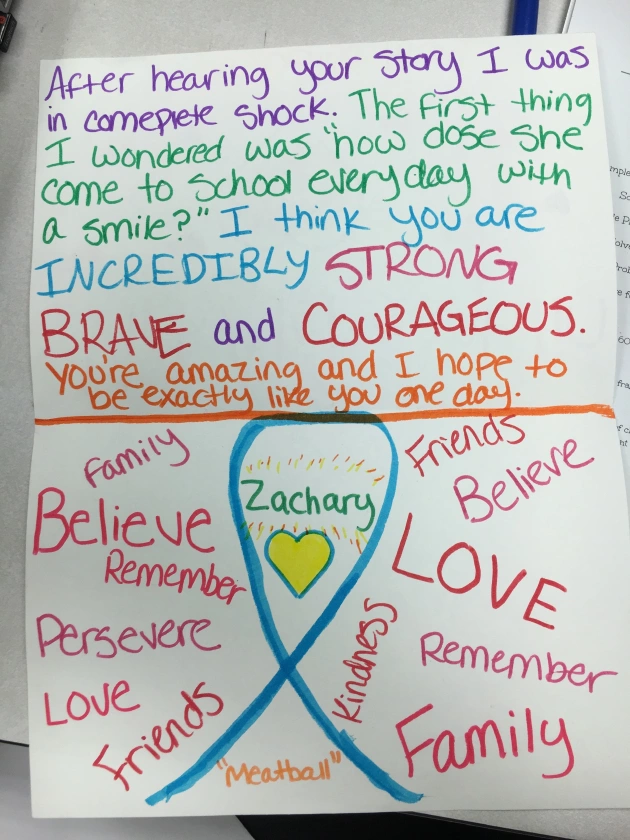 After hearing your story I was
in comeplete shock. The first thing
I wondered was "how dose she
come to school everyday with
a smile?" I think you are
INCREDIBLY STRONG
BRAVE and COURAGEOUS.
You're amazing and I hope to
be exactly like you one day.
Family
Friends
Believe
Zachary
Believe
Remember
LOVE
Persevere
Kindness
Remember
Love
Friends
Family
"Meatball"